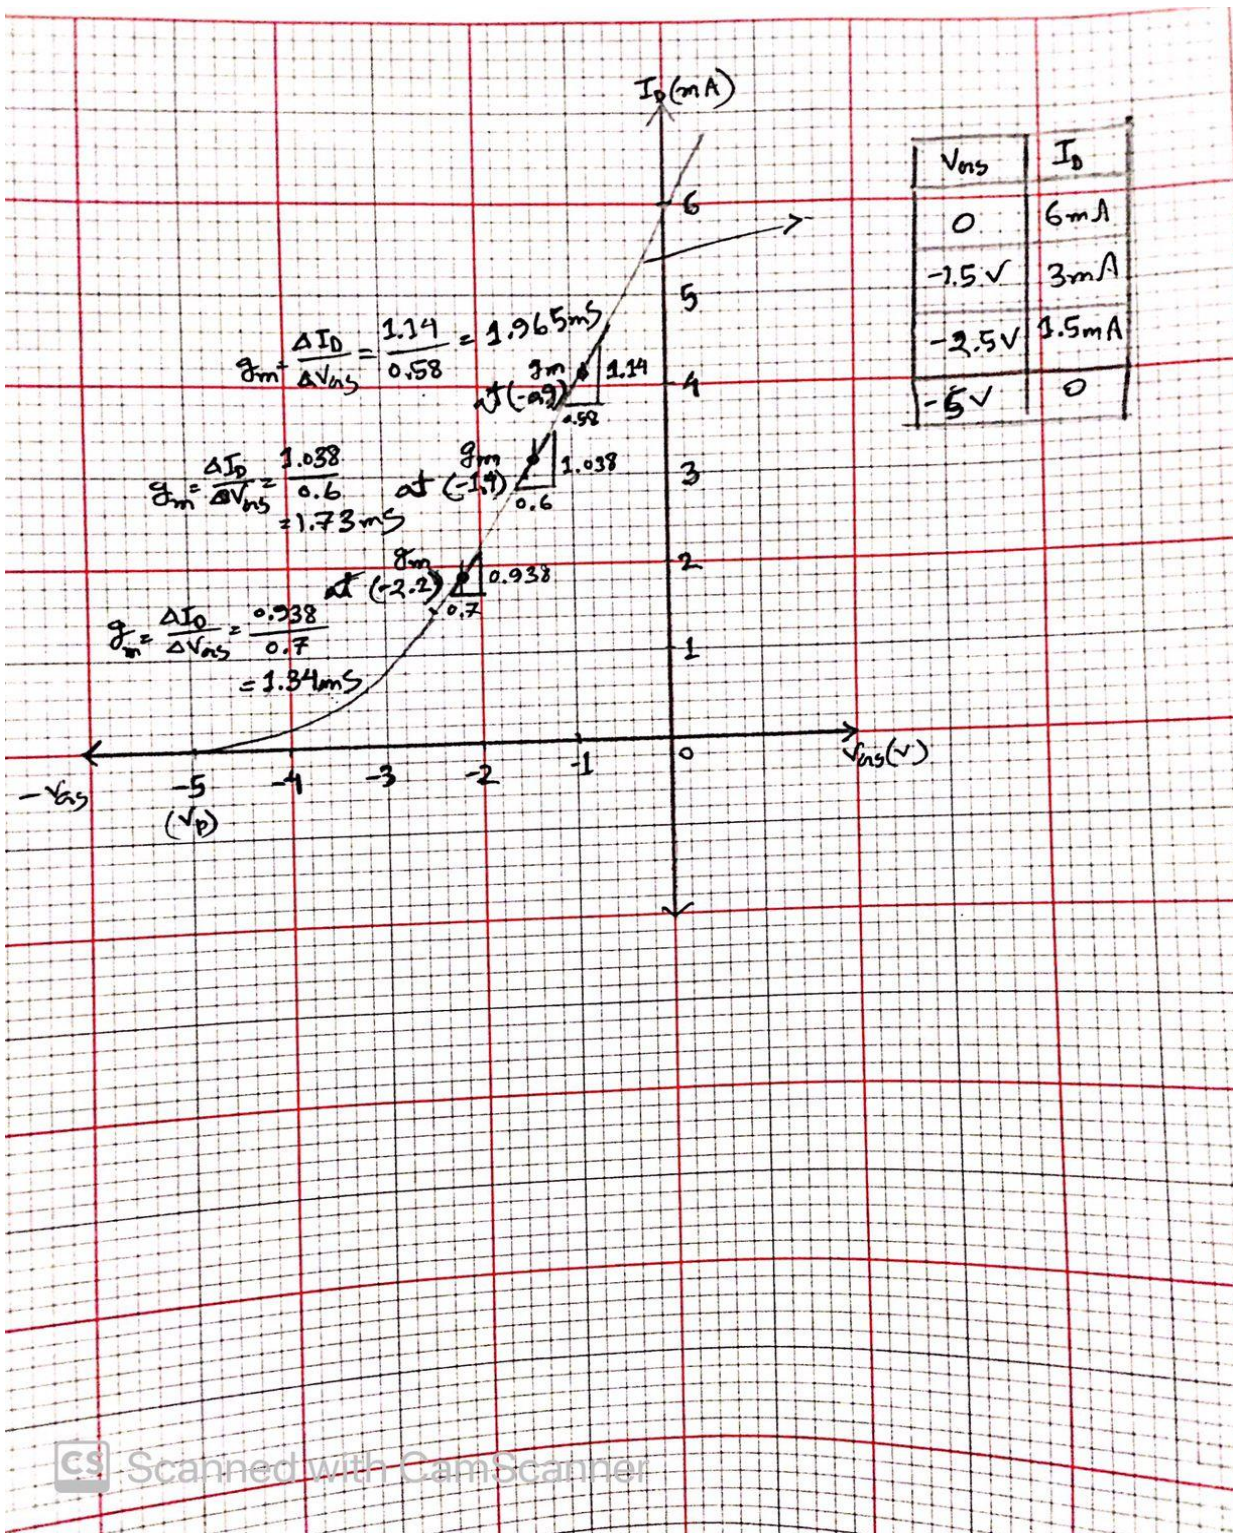 I_D (mA)
V_GS I_D
0 6mA
-1.5 V 3mA
-2.5V 1.5mA
-5 V 0
6
5
4
3
2
1
0
g_m = ΔI_D/ΔV_GS = 1.14/0.58 = 1.965mS
g_m
at (-0.9)
1.14
0.58
g_m = ΔI_D/ΔV_GS = 1.038/0.6
= 1.73 mS
g_m
at (-1.4)
1.038
0.6
g_m = ΔI_D/ΔV_GS = 0.938/0.7
= 1.34mS
g_m
at (-2.2)
0.938
0.7
-V_GS
-5 -4 -3 -2 -1
(V_P)
V_GS (V)
CS Scanned with CamScanner